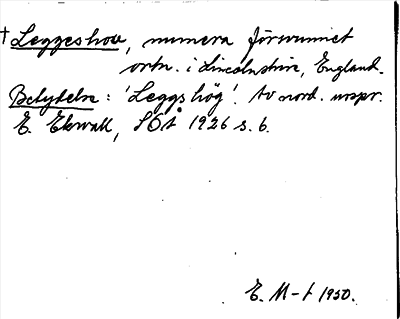 †Leggeshou, numera försvunnet
ortn. i Lincolnshire, England.
Betydelse: 'Leggs hög'. Av nord. urspr.
E. Ekwall, SOÅ 1926 s. 6.
E. M-t 1950.